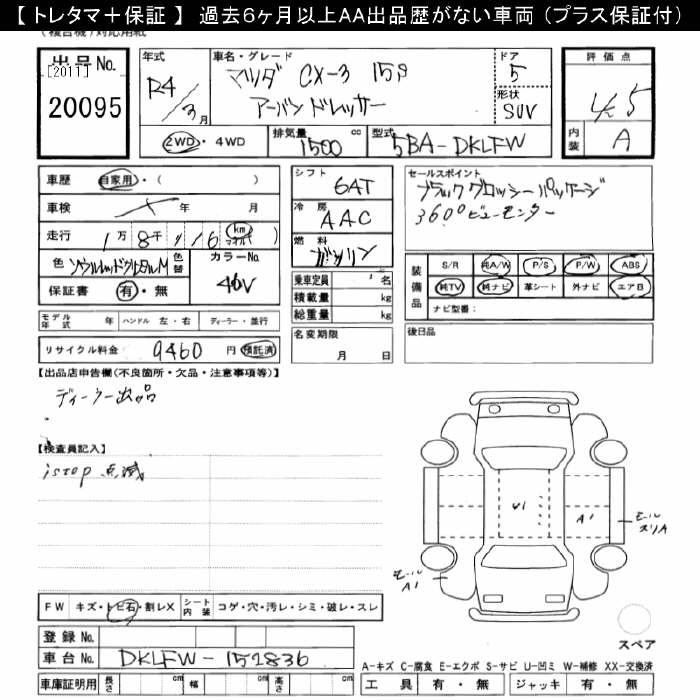 【 トレタマ＋保証 】 過去６ヶ月以上ＡＡ出品歴がない車両（プラス保証付）
出品No.
[2011]
20095
年式
R4/3月
車名・グレード
マツダ CX-3 15S
アーバンドレッサー
ドア
5
形状
SUV
評価点
4.5
内装
A
2WD・4WD
排気量 1500 cc
型式 5BA-DKLFW
車歴 自家用・( )
車検 年 月
走行 1万 8千 116 km マイル
色 ソウルレッドクリスタルM
色替
カラーNo.
46V
保証書 有・無
シフト
6AT
冷房
AAC
燃料
ガソリン
乗車定員 名
積載量 kg
総重量 kg
セールスポイント
ブラックグロッシーパッケージ
360°ビューモニター
装備品
S/R 純A/W P/S P/W ABS
純TV 純ナビ 革シート 外ナビ エアB
ナビ型番：
モデル年式 年 ハンドル 左・右 ディーラー・並行
名変期限
月 日
後日品
リサイクル料金： 9460 円 預託済
【出品店申告欄(不良箇所・欠品・注意事項等)】
ディーラー出品
【検査員記入】
istop 点滅
U1
A1
モール スリA
モール A1
FW キズ・トビ石・割レX
シート内装 コゲ・穴・汚レ・シミ・破レ・スレ
スペア
登録No.
車台No. DKLFW-152836
A-キズ C-腐食 E-エクボ S-サビ U-凹ミ W-補修 XX-交換済
車庫証明用 長さ cm 幅 cm 高さ cm
工具 有・無 ジャッキ 有・無